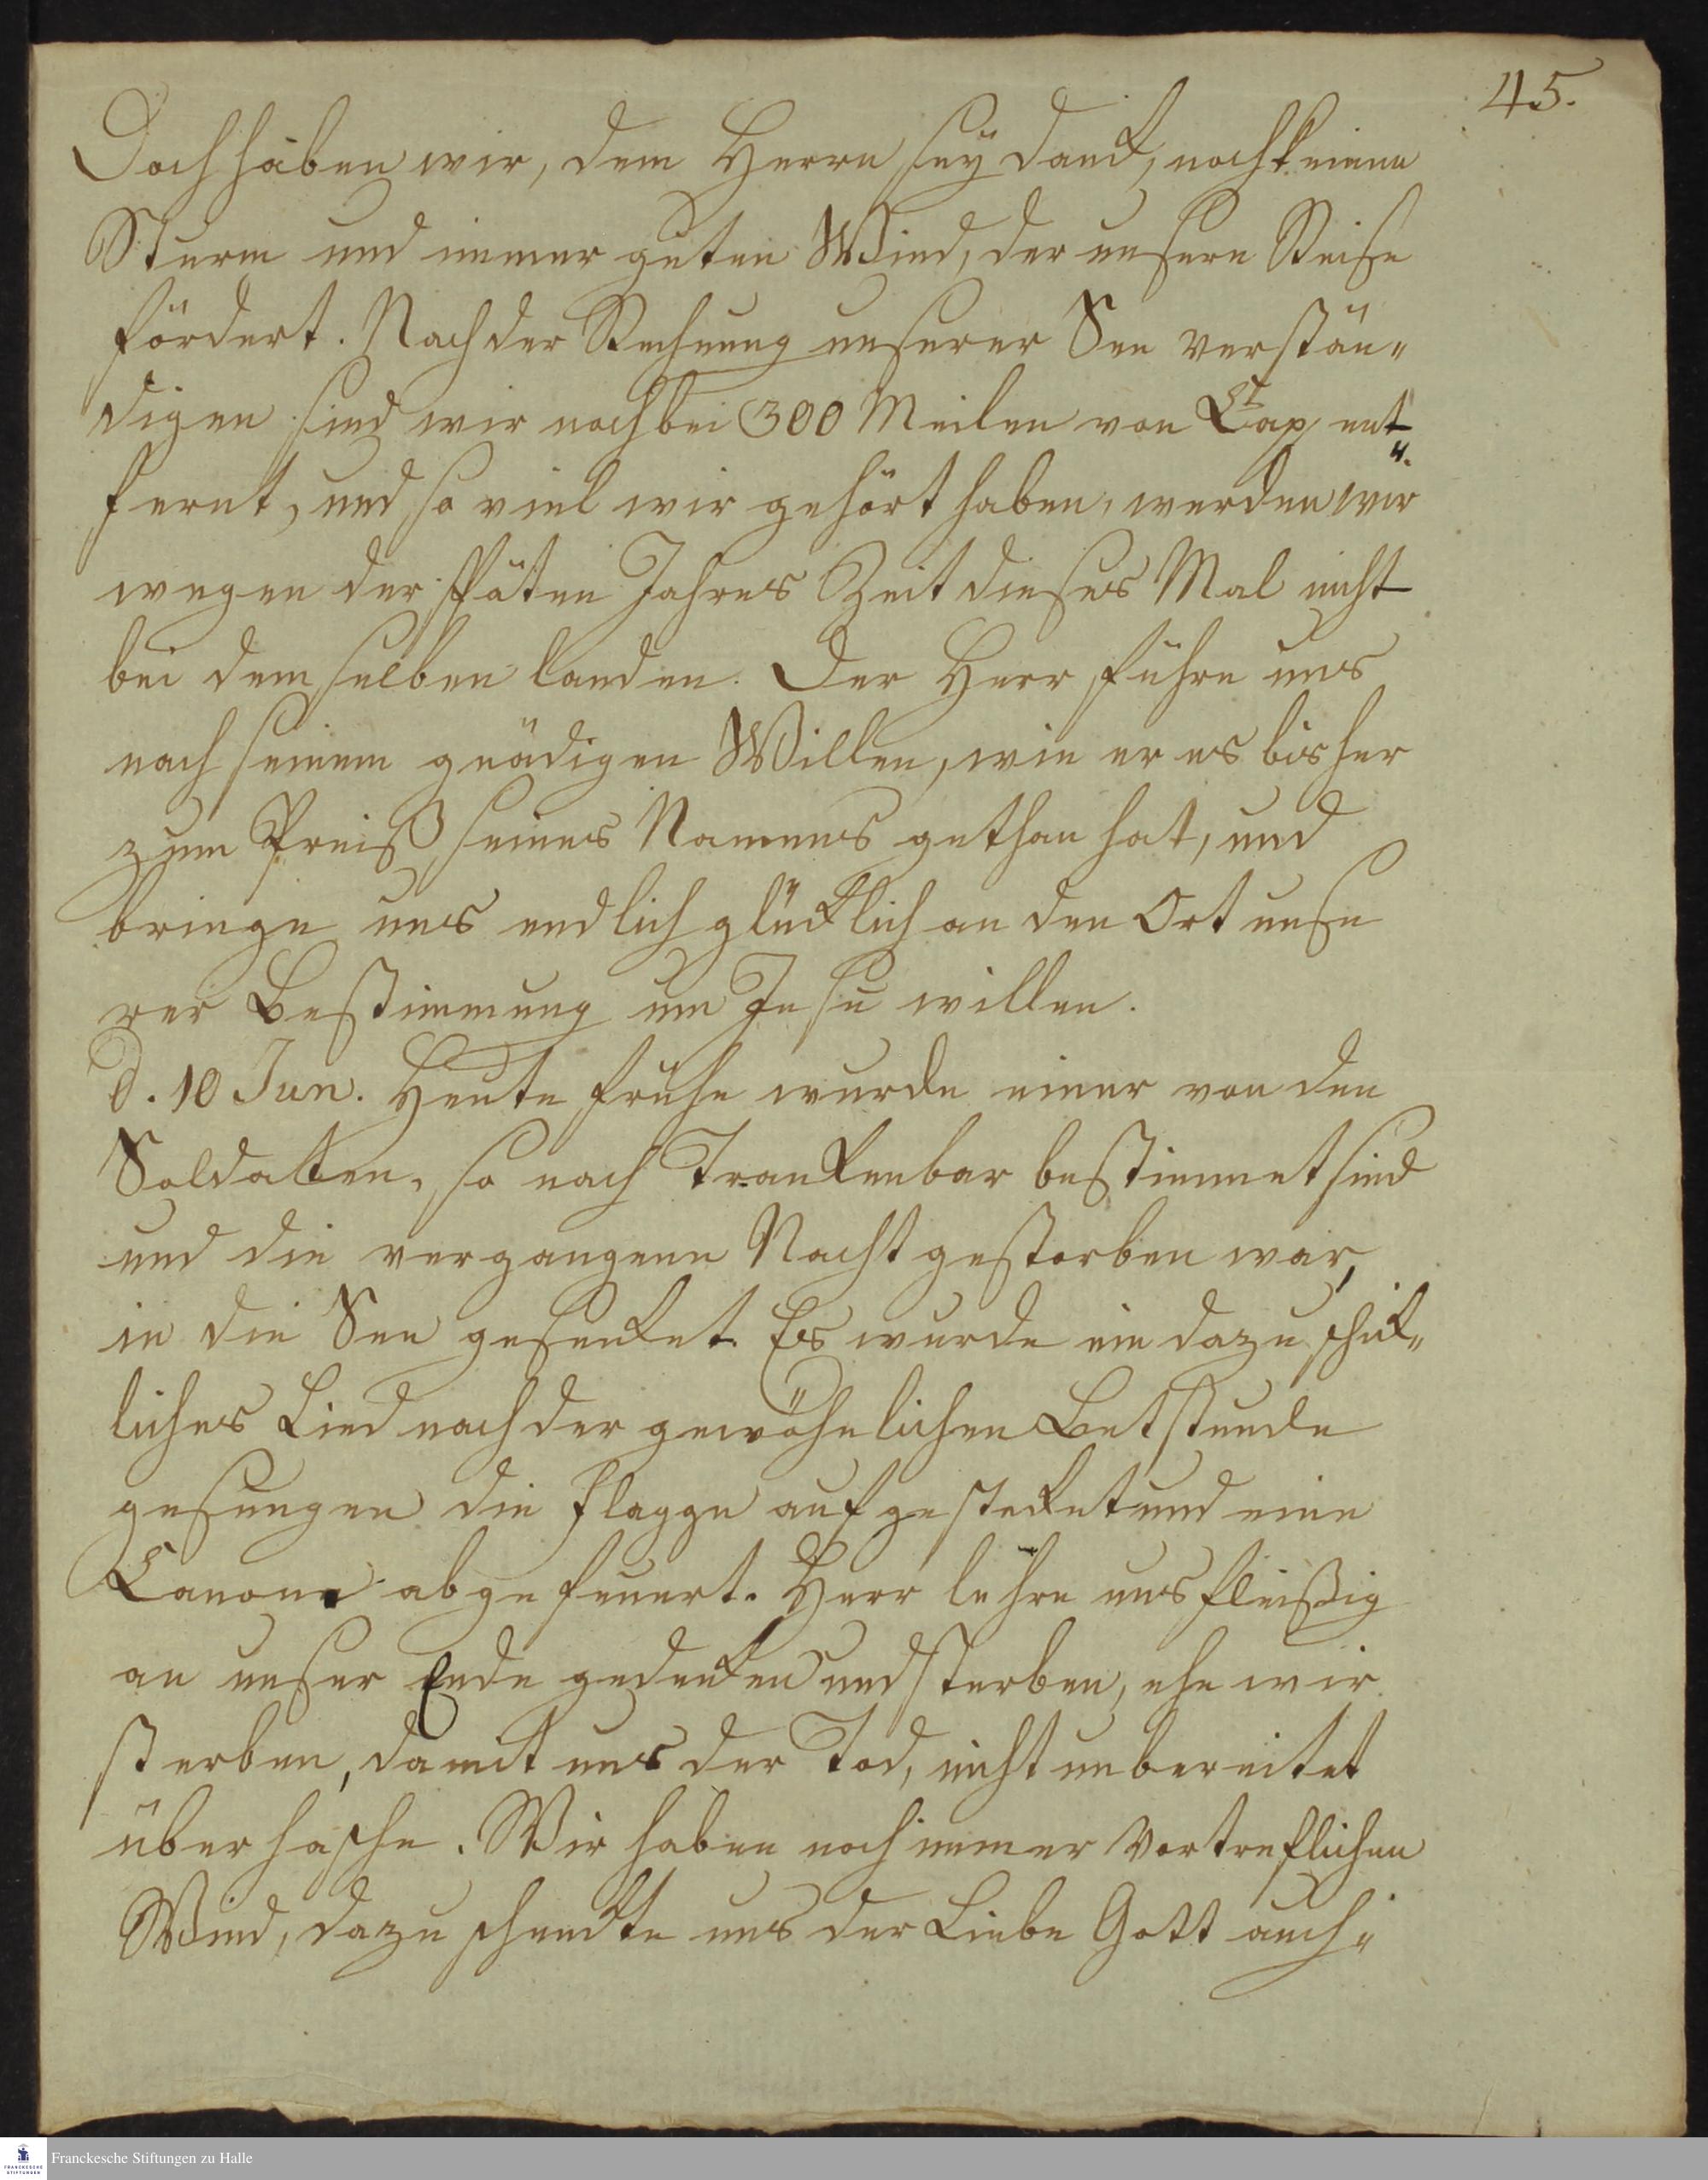 45.
Doch haben wir, dem Herrn seÿ danck, noch keinen
Sturm und immer guten Wind, der unsere Reise
fördert. Nach der Rechnung unserer See verstän„
digen sind wir noch bei 300 Meilen von Cap ent„
fernt, und so viel wir gehört haben, werden wir
wegen der späten Jahres Zeit dieses Mal nicht
bei demselben landen. Der Herr führe uns
nach seinem gnädigen Willen, wie er es bisher
zum Preiß seines Namens gethan hat, und
bringe uns endlich glücklich an den Ort unse
rer Bestimmung um Jesu willen.
d. 10 Jun. Heute frühe wurde einer von den
Soldatten, so nach Trankenbar bestimmet sind
und die vergangene Nacht gestorben war,
in die See gesenket. Es wurde ein dazu schik„
liches Lied nach der gewöhnlichen Betstunde
gesungen die Flagge aufgestecket und eine
Canone abgefeuert. Herr lehre uns fleißig
an unser Ende gedenken und sterben, ehe wir
sterben, damit uns der Tod, nicht unbereitet
überhasche. Wir haben noch immer vortreflichen
Wind, dazu schenckte uns der Liebe Gott auch„
Franckesche Stiftungen zu Halle